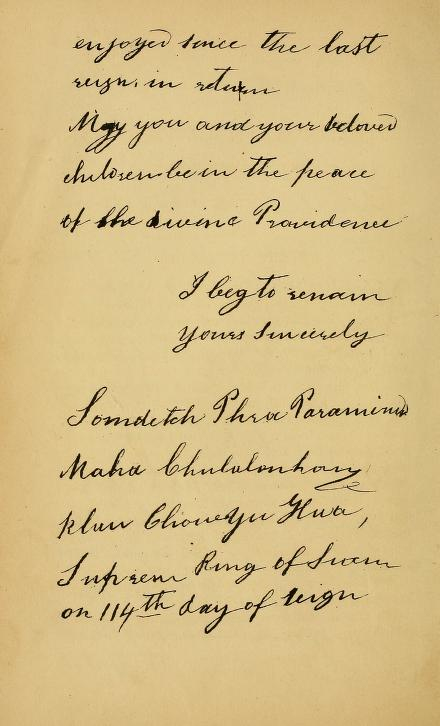 enjoyed since the last
reign, in return
May you and your beloved
children be in the peace
of the divine Providence
I beg to remain
Yours Sincerely
Somdetch Phra Paramind
Maha Chulalonkorn
Klau Chow Yu Hua,
Supreem King of Siam
on 114th day of reign